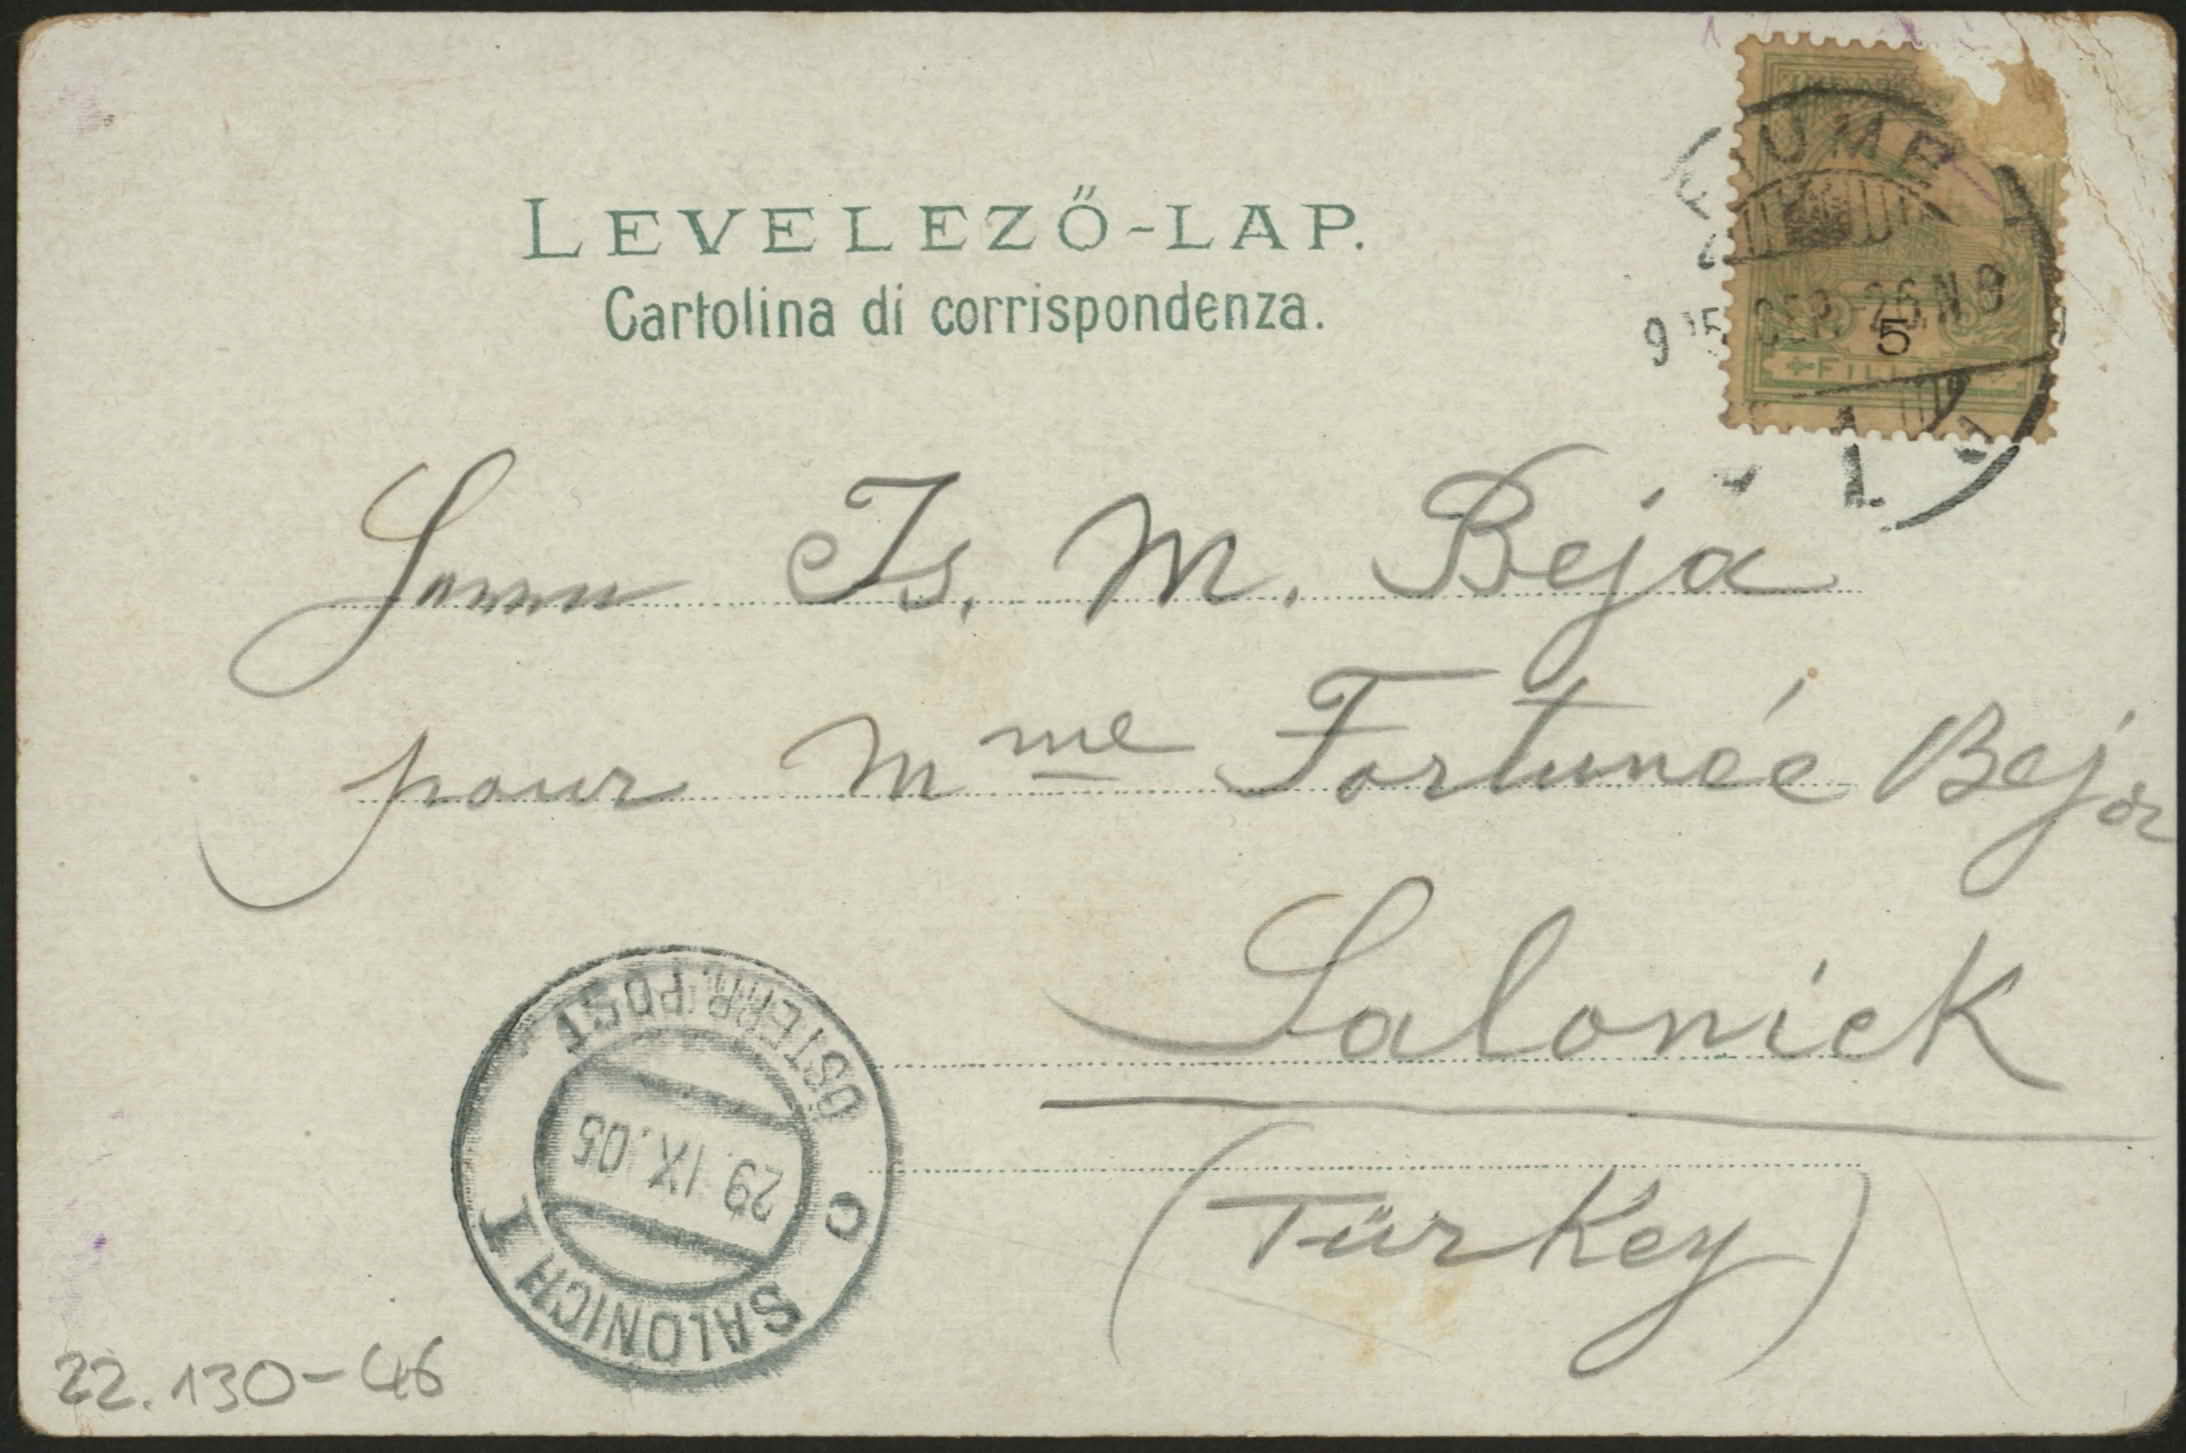 LEVELEZŐ-LAP.
Cartolina di corrispondenza.
FIUME
905 SEP. 26 N 8
5
FILLÉR
Herrn Is. M. Beja
pour Mme Fortunée Beja
Salonick
(Türkey)
ÖSTERR. POST
29. IX. 05
SALONICH I
C
22.130-46